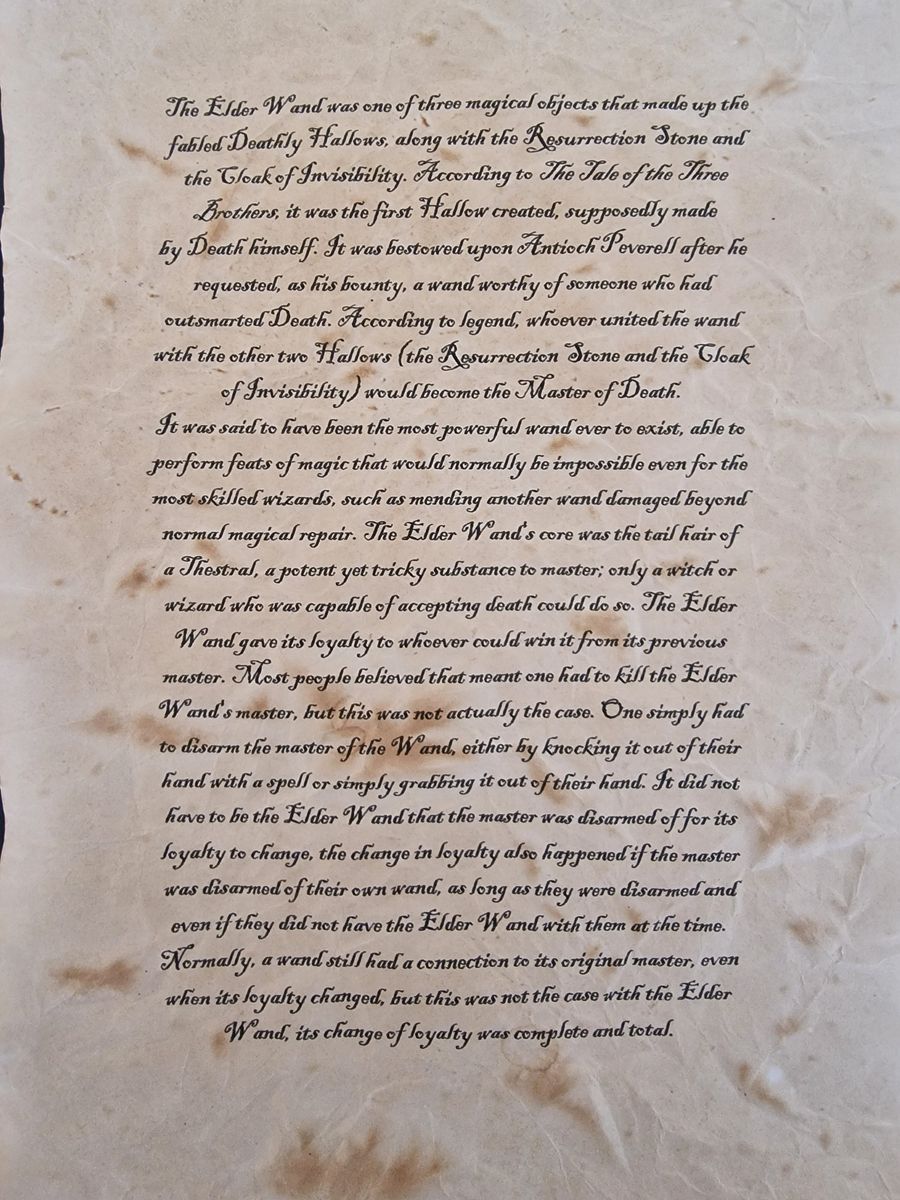 The Elder Wand was one of three magical objects that made up the
fabled Deathly Hallows, along with the Resurrection Stone and
the Cloak of Invisibility. According to The Tale of the Three
Brothers, it was the first Hallow created, supposedly made
by Death himself. It was bestowed upon Antioch Peverell after he
requested, as his bounty, a wand worthy of someone who had
outsmarted Death. According to legend, whoever united the wand
with the other two Hallows (the Resurrection Stone and the Cloak
of Invisibility) would become the Master of Death.
It was said to have been the most powerful wand ever to exist, able to
perform feats of magic that would normally be impossible even for the
most skilled wizards, such as mending another wand damaged beyond
normal magical repair. The Elder Wand's core was the tail hair of
a Thestral, a potent yet tricky substance to master; only a witch or
wizard who was capable of accepting death could do so. The Elder
Wand gave its loyalty to whoever could win it from its previous
master. Most people believed that meant one had to kill the Elder
Wand's master, but this was not actually the case. One simply had
to disarm the master of the Wand, either by knocking it out of their
hand with a spell or simply grabbing it out of their hand. It did not
have to be the Elder Wand that the master was disarmed of for its
loyalty to change, the change in loyalty also happened if the master
was disarmed of their own wand, as long as they were disarmed and
even if they did not have the Elder Wand with them at the time.
Normally, a wand still had a connection to its original master, even
when its loyalty changed, but this was not the case with the Elder
Wand, its change of loyalty was complete and total.